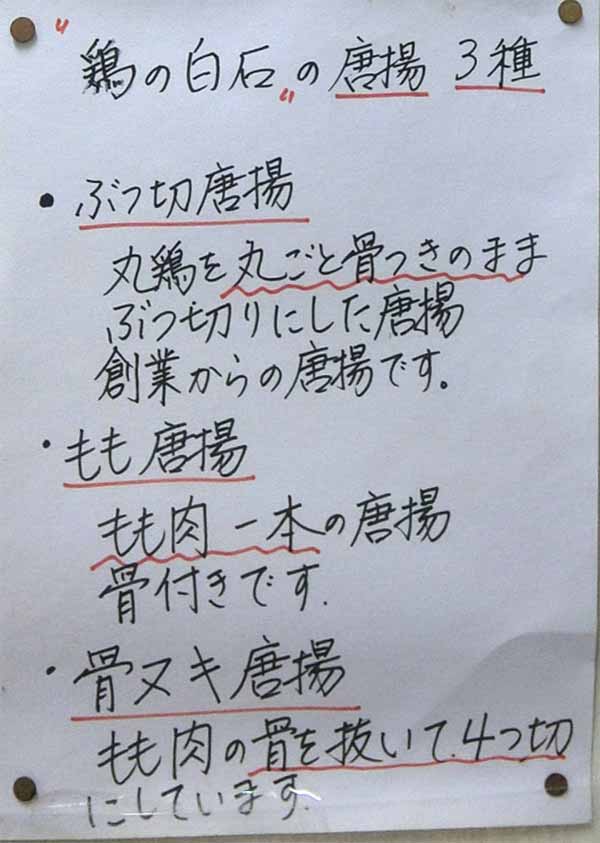 "鶏の白石"の唐揚 3種
・ぶつ切唐揚
丸鶏を丸ごと骨つきのまま
ぶつ切りにした唐揚
創業からの唐揚です。
・もも唐揚
もも肉一本の唐揚
骨付きです.
・骨ヌキ唐揚
もも肉の骨を抜いて.4つ切
にしています.